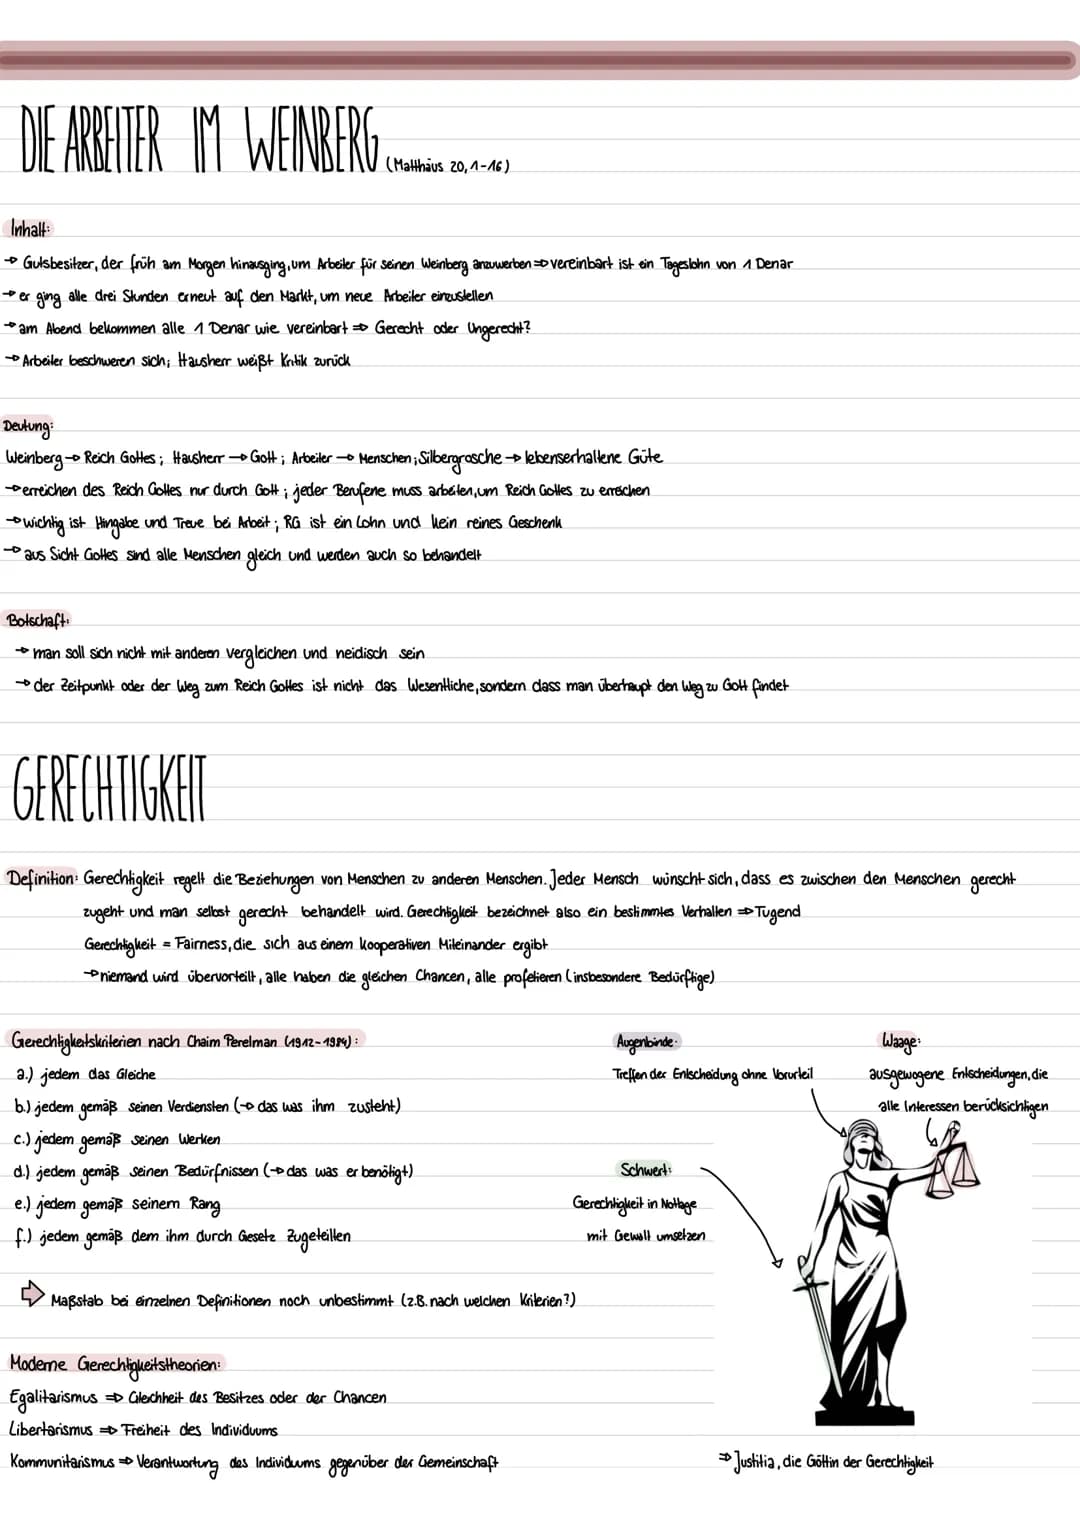 DIE ARBEITER IM WEINBERG (Matthäus 20,1-16)
Inhalt:
→ Gutsbesitzer, der früh am Morgen hinausging, um Arbeiter für seinen Weinberg anzuwerben ⇒ vereinbart ist ein Tageslohn von 1 Denar
→ er ging alle drei Stunden erneut auf den Markt, um neue Arbeiter einzustellen
→ am Abend bekommen alle 1 Denar wie vereinbart ⇒ Gerecht oder Ungerecht?
→ Arbeiter beschweren sich; Hausherr weißt Kritik zurück
Deutung:
Weinberg → Reich Gottes; Hausherr → Gott; Arbeiter → Menschen; Silbergrosche → lebenserhaltene Güte
→ erreichen des Reich Gottes nur durch Gott; jeder Berufene muss arbeiten, um Reich Gottes zu erreichen
→ wichtig ist Hingabe und Treue bei Arbeit; RG ist ein Lohn und kein reines Geschenk
→ aus Sicht Gottes sind alle Menschen gleich und werden auch so behandelt
Botschaft:
→ man soll sich nicht mit anderen vergleichen und neidisch sein
→ der Zeitpunkt oder der Weg zum Reich Gottes ist nicht das Wesentliche, sondern dass man überhaupt den Weg zu Gott findet
GERECHTIGKEIT
Definition: Gerechtigkeit regelt die Beziehungen von Menschen zu anderen Menschen. Jeder Mensch wünscht sich, dass es zwischen den Menschen gerecht
zugeht und man selbst gerecht behandelt wird. Gerechtigkeit bezeichnet also ein bestimmtes Verhalten ⇒ Tugend
Gerechtigkeit = Fairness, die sich aus einem kooperativen Miteinander ergibt
→ niemand wird übervorteilt, alle haben die gleichen Chancen, alle profetieren (insbesondere Bedürftige)
Gerechtigkeitskriterien nach Chaim Perelman (1912-1984):
a.) jedem das Gleiche
b.) jedem gemäß seinen Verdiensten (→ das was ihm zusteht)
c.) jedem gemäß seinen Werken
d.) jedem gemäß seinen Bedürfnissen (→ das was er benötigt)
e.) jedem gemäß seinem Rang
f.) jedem gemäß dem ihm durch Gesetz Zugeteillen
⇒ Maßstab bei einzelnen Definitionen noch unbestimmt (z.B. nach welchen Kriterien?)
Augenbinde:
Treffen der Entscheidung ohne Vorurteil
Waage:
ausgewogene Entscheidungen, die
alle Interessen berücksichtigen
Schwert:
Gerechtigkeit in Notlage
mit Gewalt umsetzen
Moderne Gerechtigkeitstheorien:
Egalitarismus ⇒ Gleichheit des Besitzes oder der Chancen
Libertarismus ⇒ Freiheit des Individuums
Kommunitarismus ⇒ Verantwortung des Individuums gegenüber der Gemeinschaft
⇒ Justitia, die Göttin der Gerechtigkeit